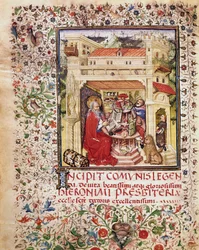 INCIPIT COMUNIS LEGEN
da de vita beatissimi atq gloriosissimi
HIERONIMI PRESBITERI
ecclesie